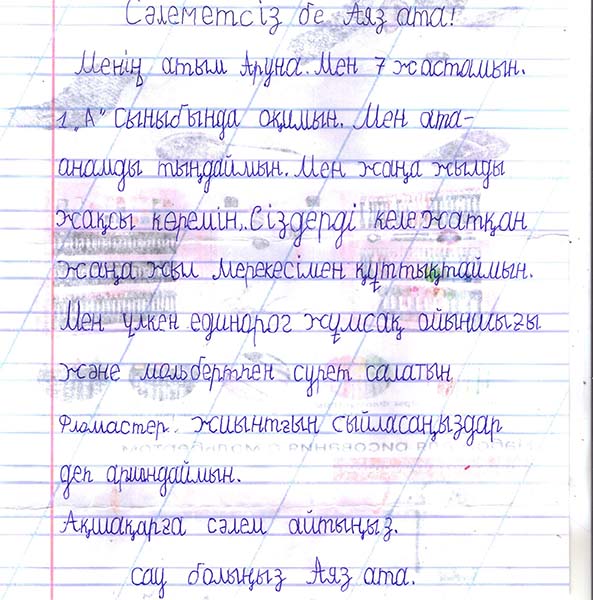 Сәлеметсіз бе Аяз ата!
Менің атым Аруна. Мен 7 жастамын.
1 „А" сыныбында оқимын. Мен ата-
анамды тыңдаймын. Мен жаңа жылды
жақсы көремін. Сіздерді келе жатқан
жаңа жыл мерекесімен құттықтаймын.
Мен үлкен единорог жұмсақ ойыншығы
және мольбертпен сурет салатын
Фломастер. жиынтғын сыйласаңыздар
деп армандаймын.
Ақшақарға сәлем айтыңыз.
сау болыңыз Аяз ата.